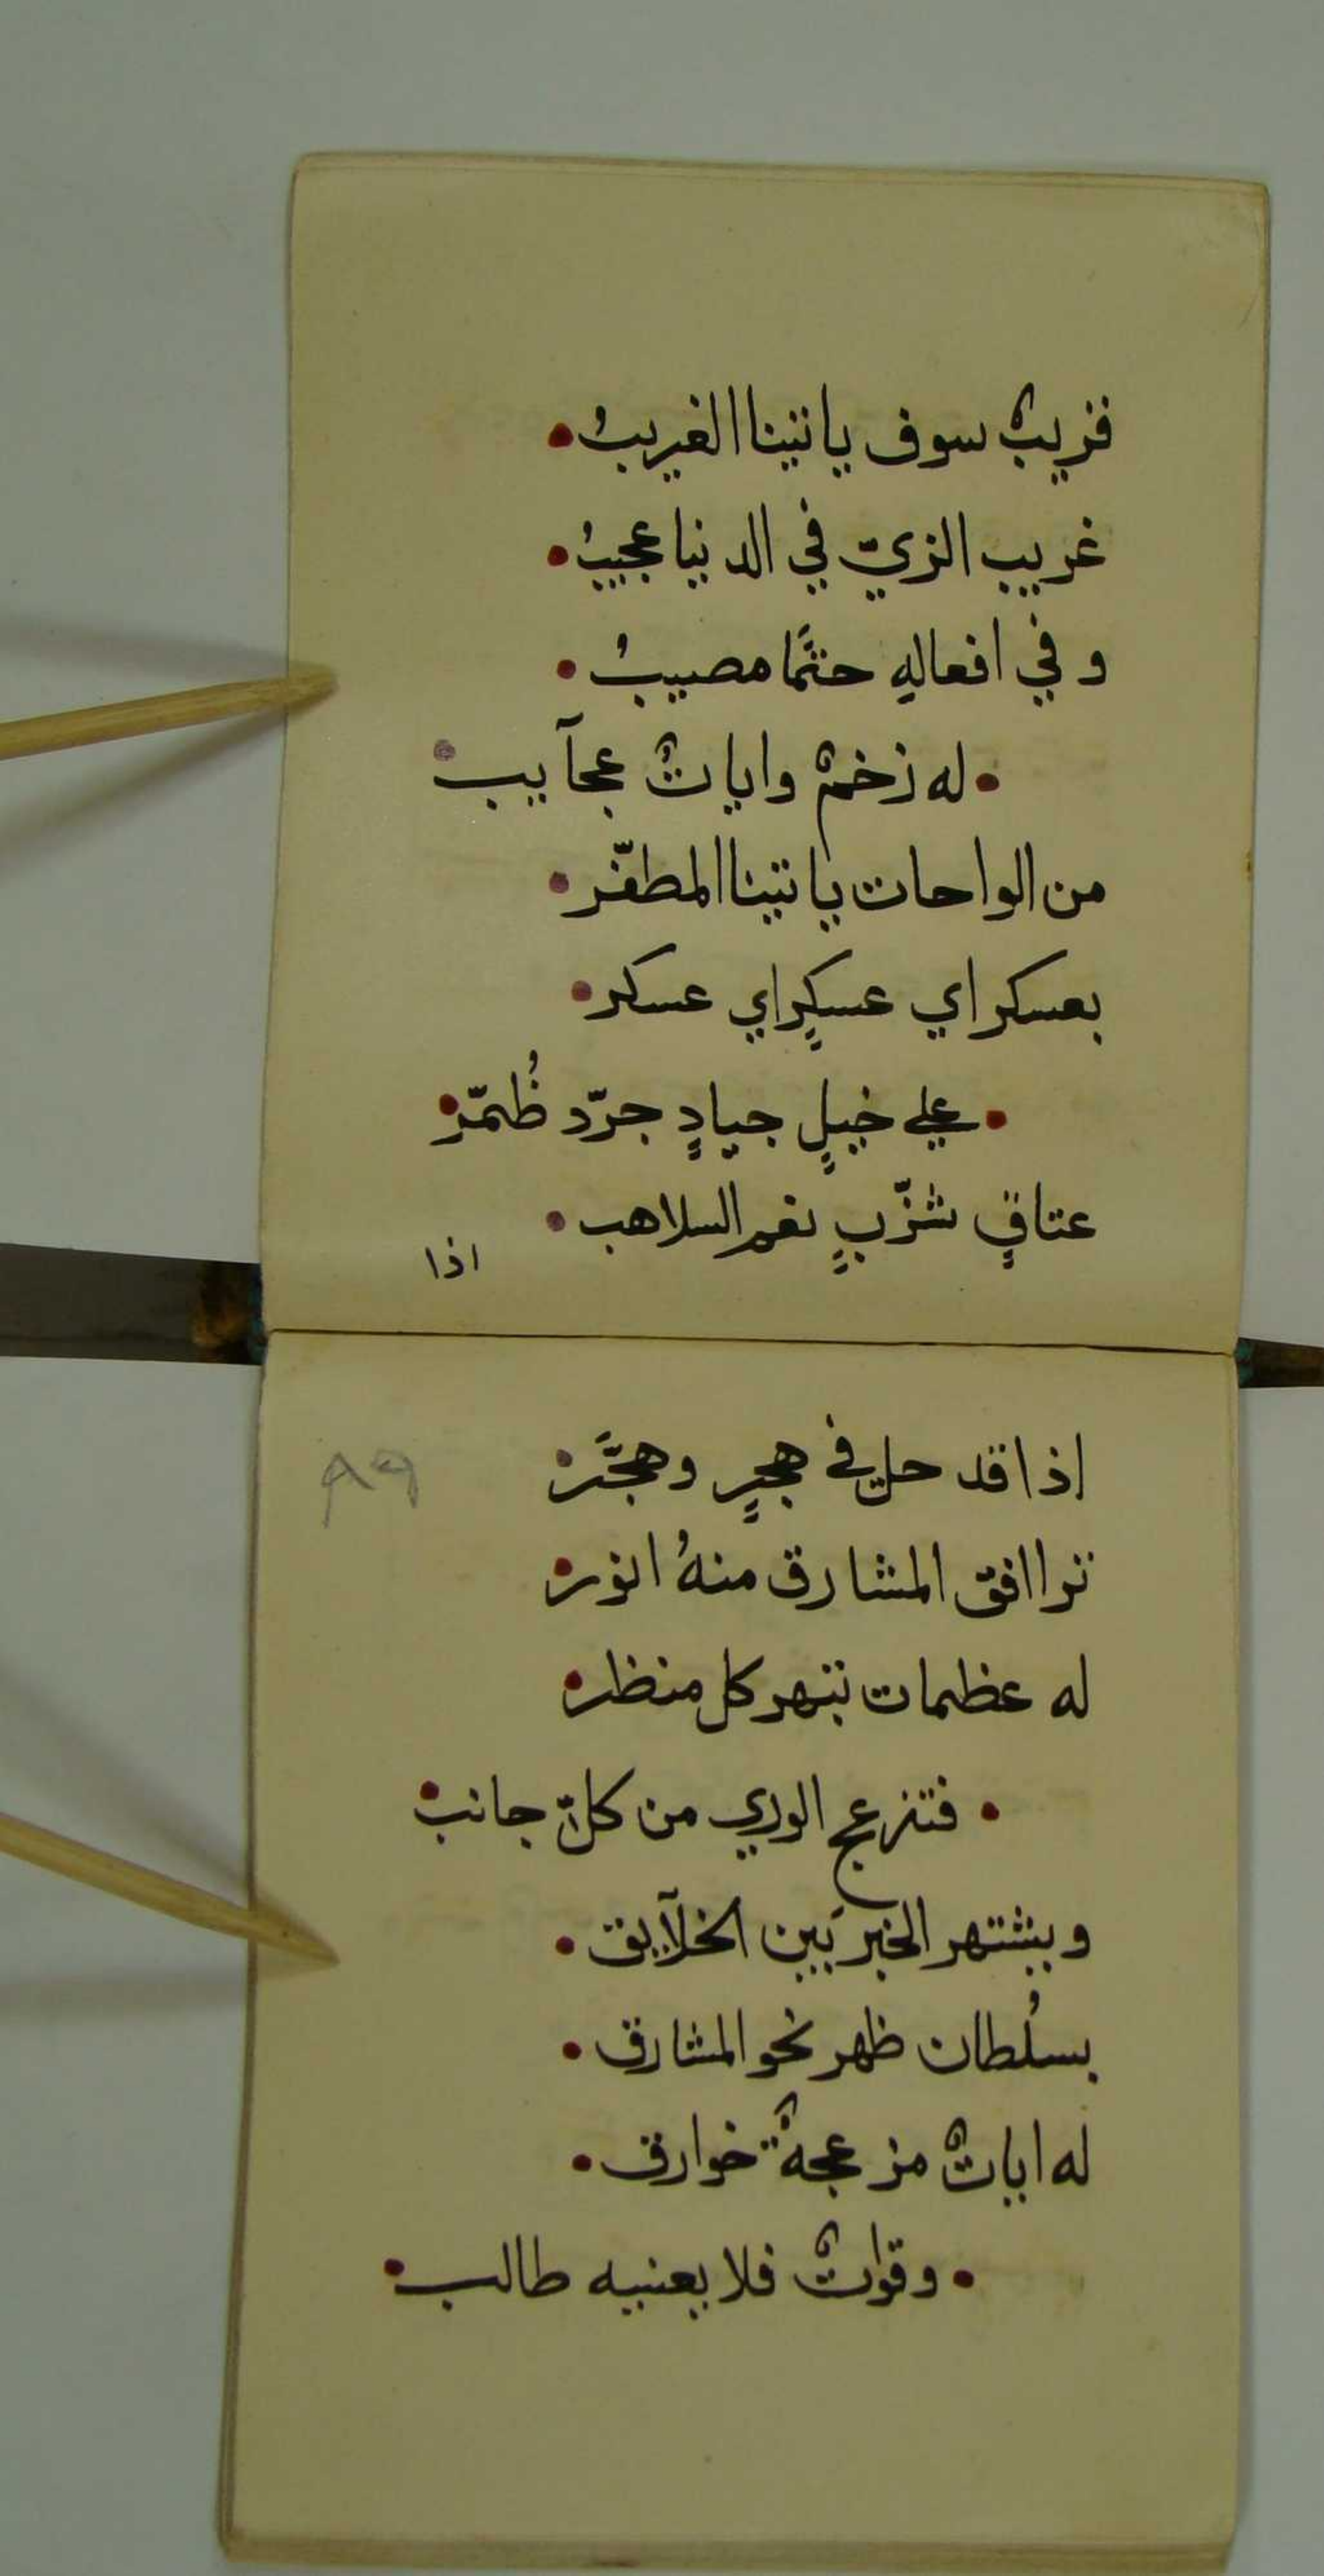 قريبٌ سوف ياتينا الغريبُ •
غريب الزيّ في الدنيا عجيبُ •
وفي افعالهِ حتمًا مصيبُ •
• له زخمٌ واياتٌ عجآيب •
من الواحات ياتينا المظفّر •
بعسكر اي عسكرٍ اي عسكر •
• علي خيلٍ جيادٍ جرّد ظُمّرِ •
عتاقٍ شزّبٍ نعم السلاهب •
اذا
اذا قد حل في هجرٍ وهجَّر •
ترا افق المشارق منهُ انور •
له عظمات تبهر كل منظر •
• فتنزعج الوري من كلّ جانب •
ويشتهر الخبر بَين الخلآيق •
بسُلطان ظهر نحو المشارق •
له اياتٌ مزعجةٌ خوارق •
• وقواتٌ فلا يعنيه طالب •
٨٩